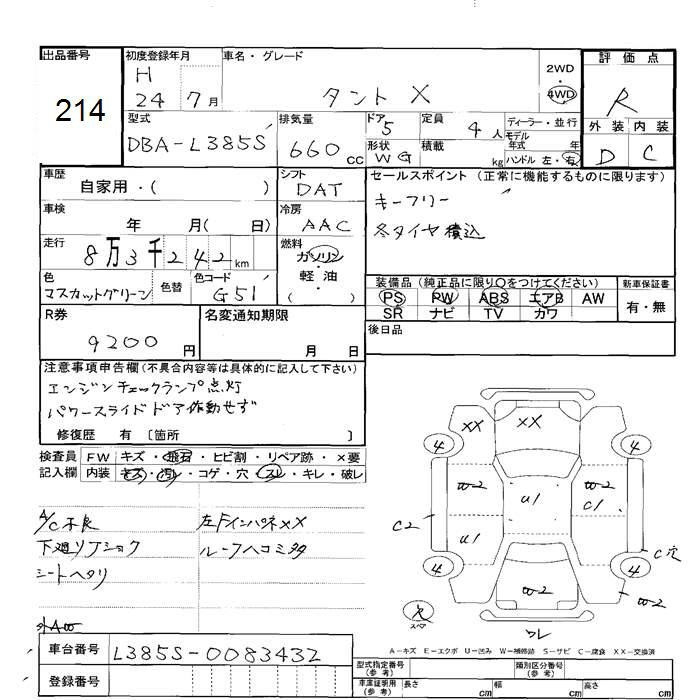 出品番号
214
初度登録年月
H
24 7月
車名・グレード
タント X
2WD
・
4WD
評価点
R
外装 内装
D C
型式
DBA-L385S
排気量
660cc
ドア 5
形状 WG
定員 4人
積載 kg
ディーラー・並行
モデル
年式 年
ハンドル 左・右
車歴
自家用・( )
シフト
DAT
セールスポイント (正常に機能するものに限ります)
キーフリー
冬タイヤ積込
車検
年 月( 日)
冷房
AAC
走行
8万3千242km
燃料
ガソリン
・
軽・油
( )
色
マスカットグリーン
色替
色コード
G51
装備品 (純正品に限り○をつけてください)
PS PW ABS エアB AW
SR ナビ TV カワ
新車保証書
有・無
R券
9200円
名変通知期限
月 日
後日品
注意事項申告欄(不具合内容等は具体的に記入して下さい)
エンジンチェックランプ点灯
パワースライドドア作動せず
修復歴 有 〔箇所 〕
検査員
記入欄
FW キズ・飛石・ヒビ割・リペア跡・×要
内装 キズ・汚レ・コゲ・穴・スレ・キレ・破レ
A/C不良
下廻りフショク
シートヘタリ
外AW
左FインパネXX
ルーフヘコミタタ
XX XX
4 4
W2 U1 W2
C1
C2 U1
C穴
4 4
W2 W2
スペア
ワレ
A－キズ E－エクボ U－凹み W－補修跡 S－サビ C－腐食 XX－交換済
車台番号
L385S-0083432
登録番号
型式指定番号
(参考)
類別区分番号
(参考)
車庫証明用
(参考)
長さ cm 幅 cm 高さ cm